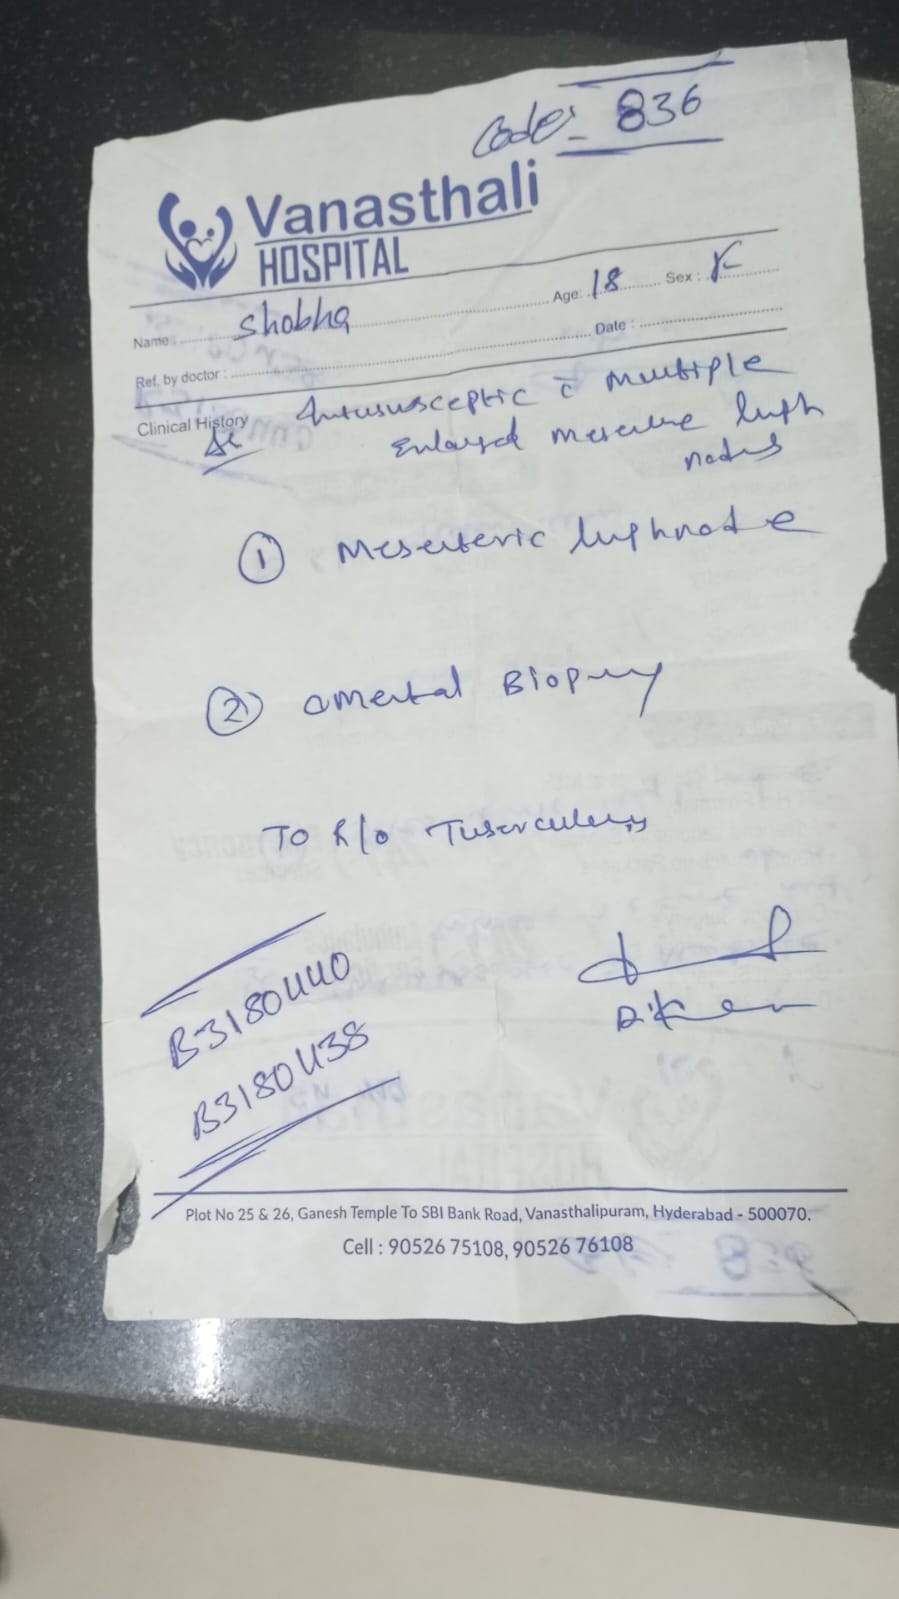 Code:- 836
Vanasthali
HOSPITAL
Name : Shobha Age: 18 Sex : F
Ref. by doctor : Date :
Clinical History Intususceptic c̄ Multiple
Enlarged Mesenteric lymph
nodes
① Mesenteric lymphnode
② Omental Biopsy
To R/o Tuberculosis
B3180440
B3180438
Plot No 25 & 26, Ganesh Temple To SBI Bank Road, Vanasthalipuram, Hyderabad - 500070.
Cell : 90526 75108, 90526 76108